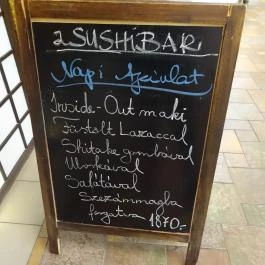 a SUSHIBAR
Napi Ajánlat
Inside-Out maki
Füstölt Lazaccal
Shitake gombával
Uborkával
Salátával
Szezámmagba
forgatva 1870.-